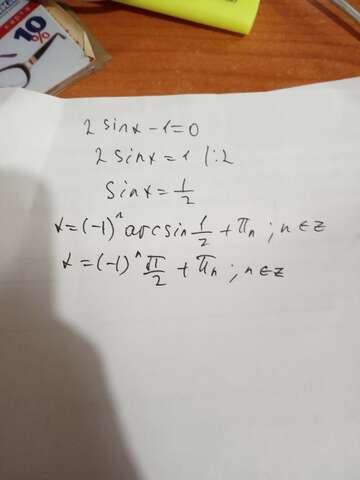 10%
2 sinx - 1 = 0
2 sinx = 1 |:2
sinx = 1/2
x = (-1)^n arcsin 1/2 + πn ; n ∈ z
x = (-1)^n π/2 + πn ; n ∈ z